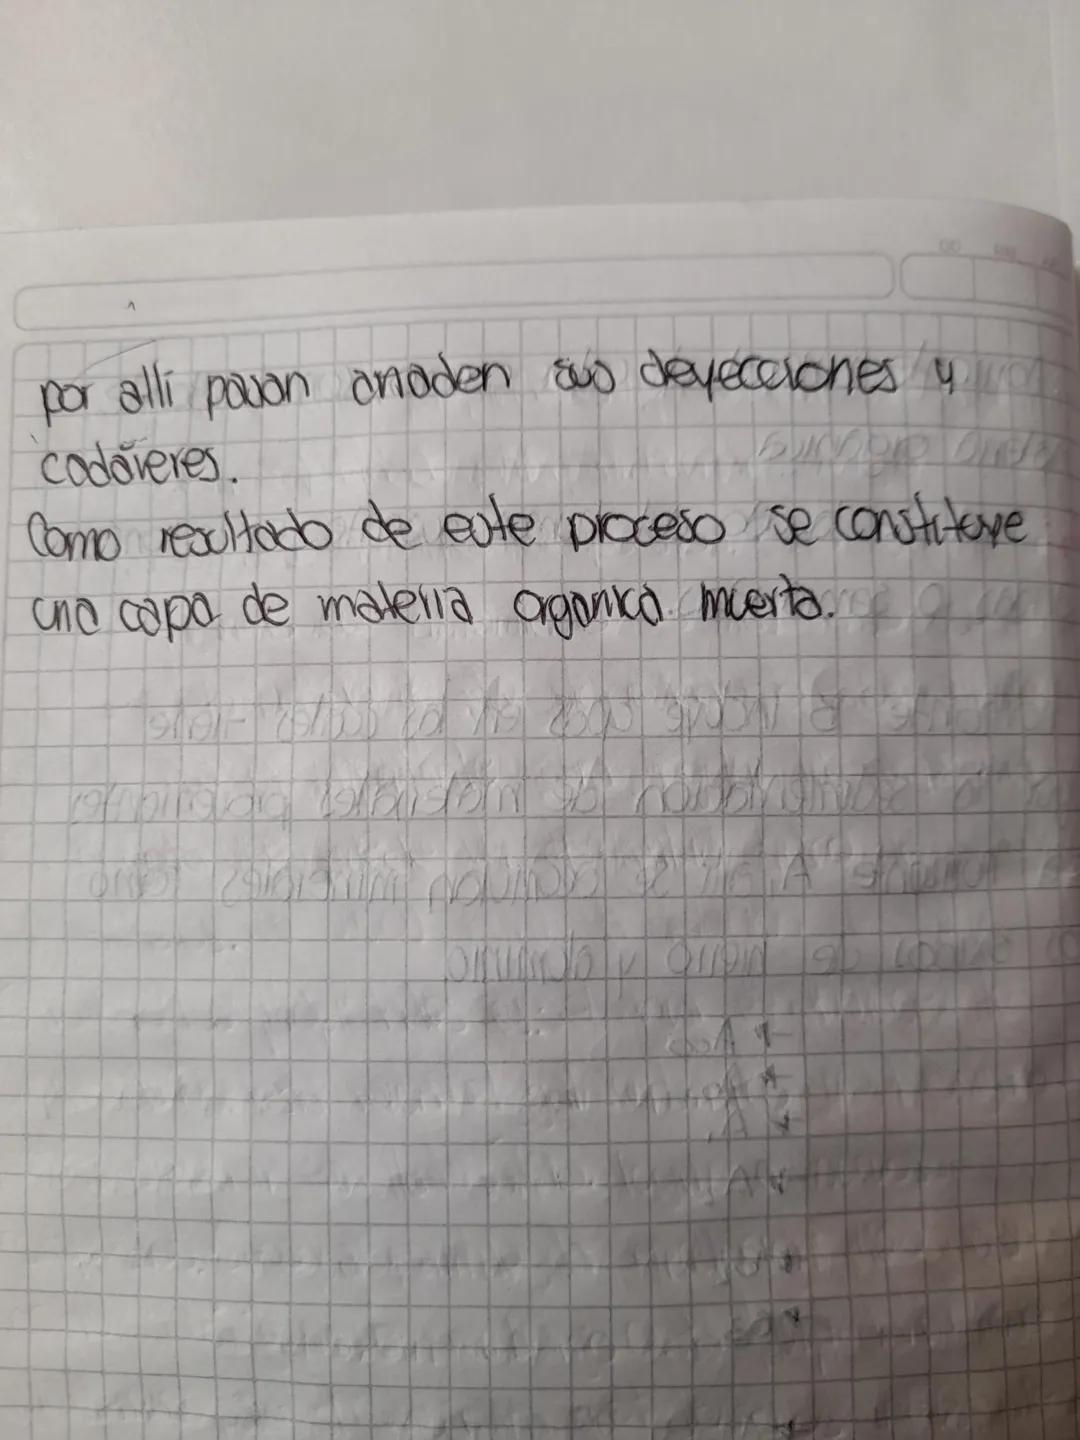 por alli pasan anaden sus deyecciones y
cadáveres.
Como resultado de este proceso se constituye
una capa de materia organica muerta.